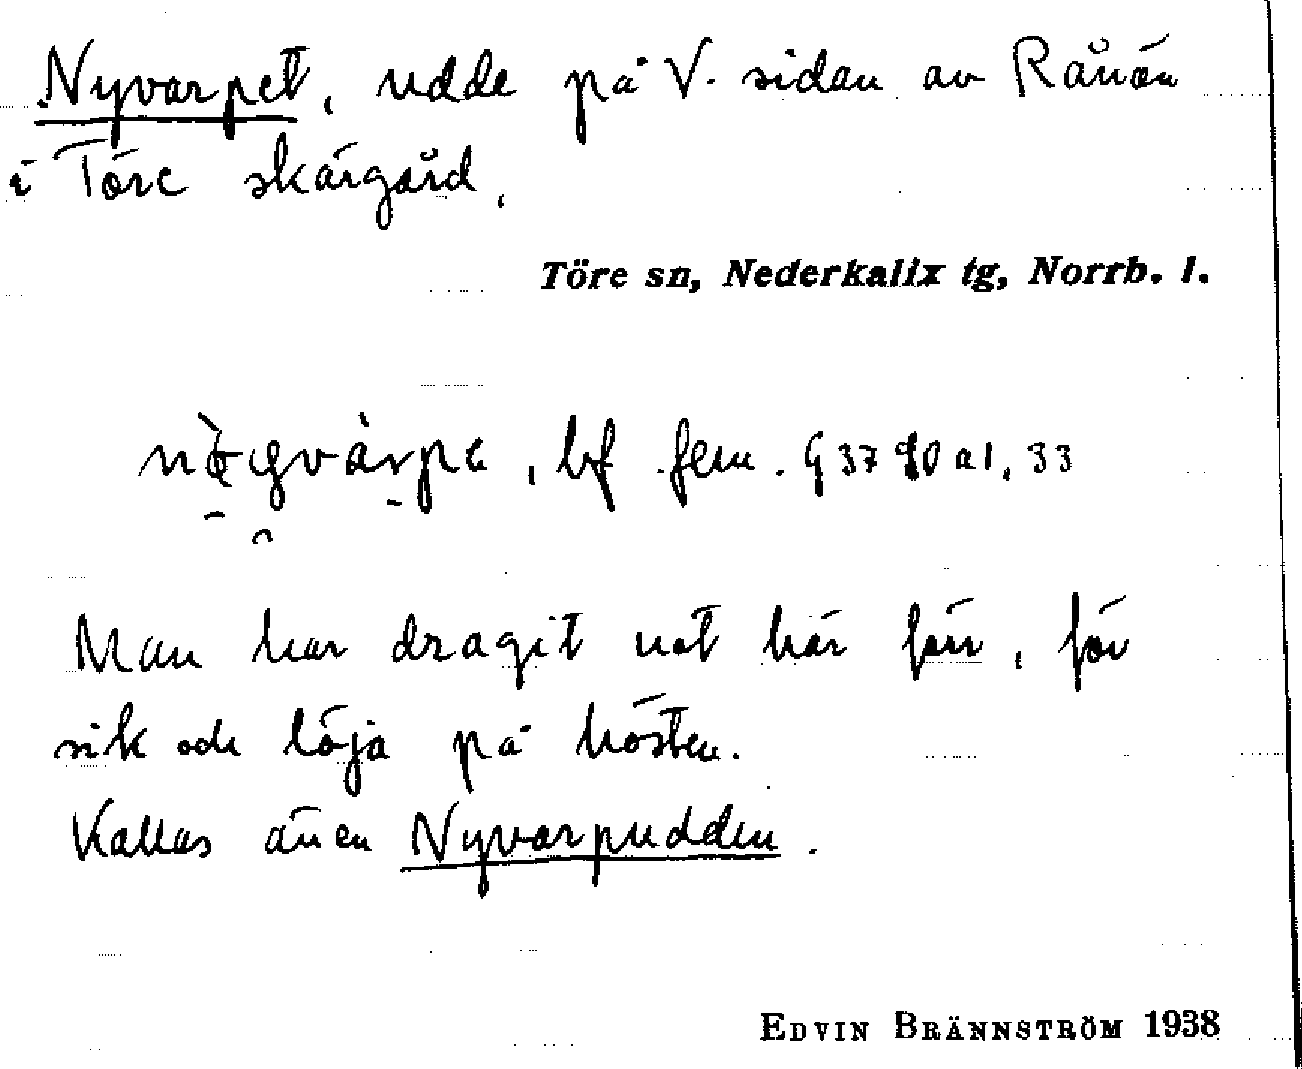 Nyvarpet, udde på V. sidan av Rånön
i Töre skärgård.
Töre sn, Nederkalix tg, Norrb. l.
bf fem. § 37 a1, 33
Man har dragit not här förr, för
sik och löja på hösten.
Kallas även Nyvarpudden.
EDVIN BRÄNNSTRÖM 1938